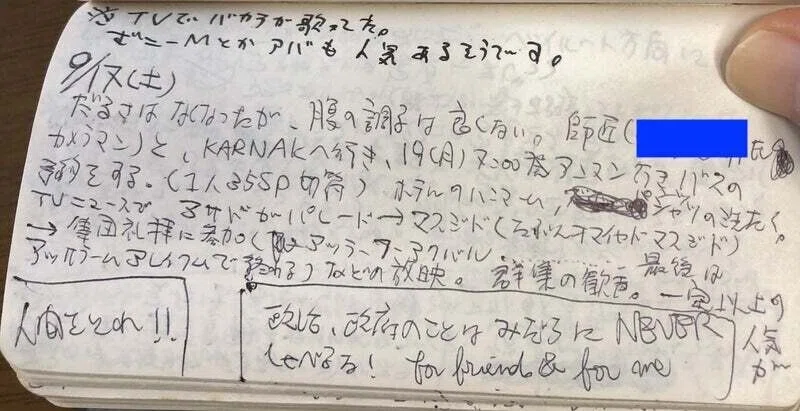 TVでバカラが歌ってた。
ボニーMとかアバも人気あるそうです。
9/17(土)
だるさはなくなったが、腹の調子は良くない。師匠(
カメラマン)と、KARNAKへ行き、19(月)7:00発アンマン行きバスの
予約をする。(1人355P 切符) ホテルのハマーム, シャツの洗たく。
TVニュースで アサドがパレード→マスジド(
→集団礼拝に参加( アッラーアクバル
で終わる)などの放映。群集の歓声。最後は
一定以上の
人気が
人間をとれ!!
政治、政府のことはみだらに NEVER
しゃべるな! for friends & for me